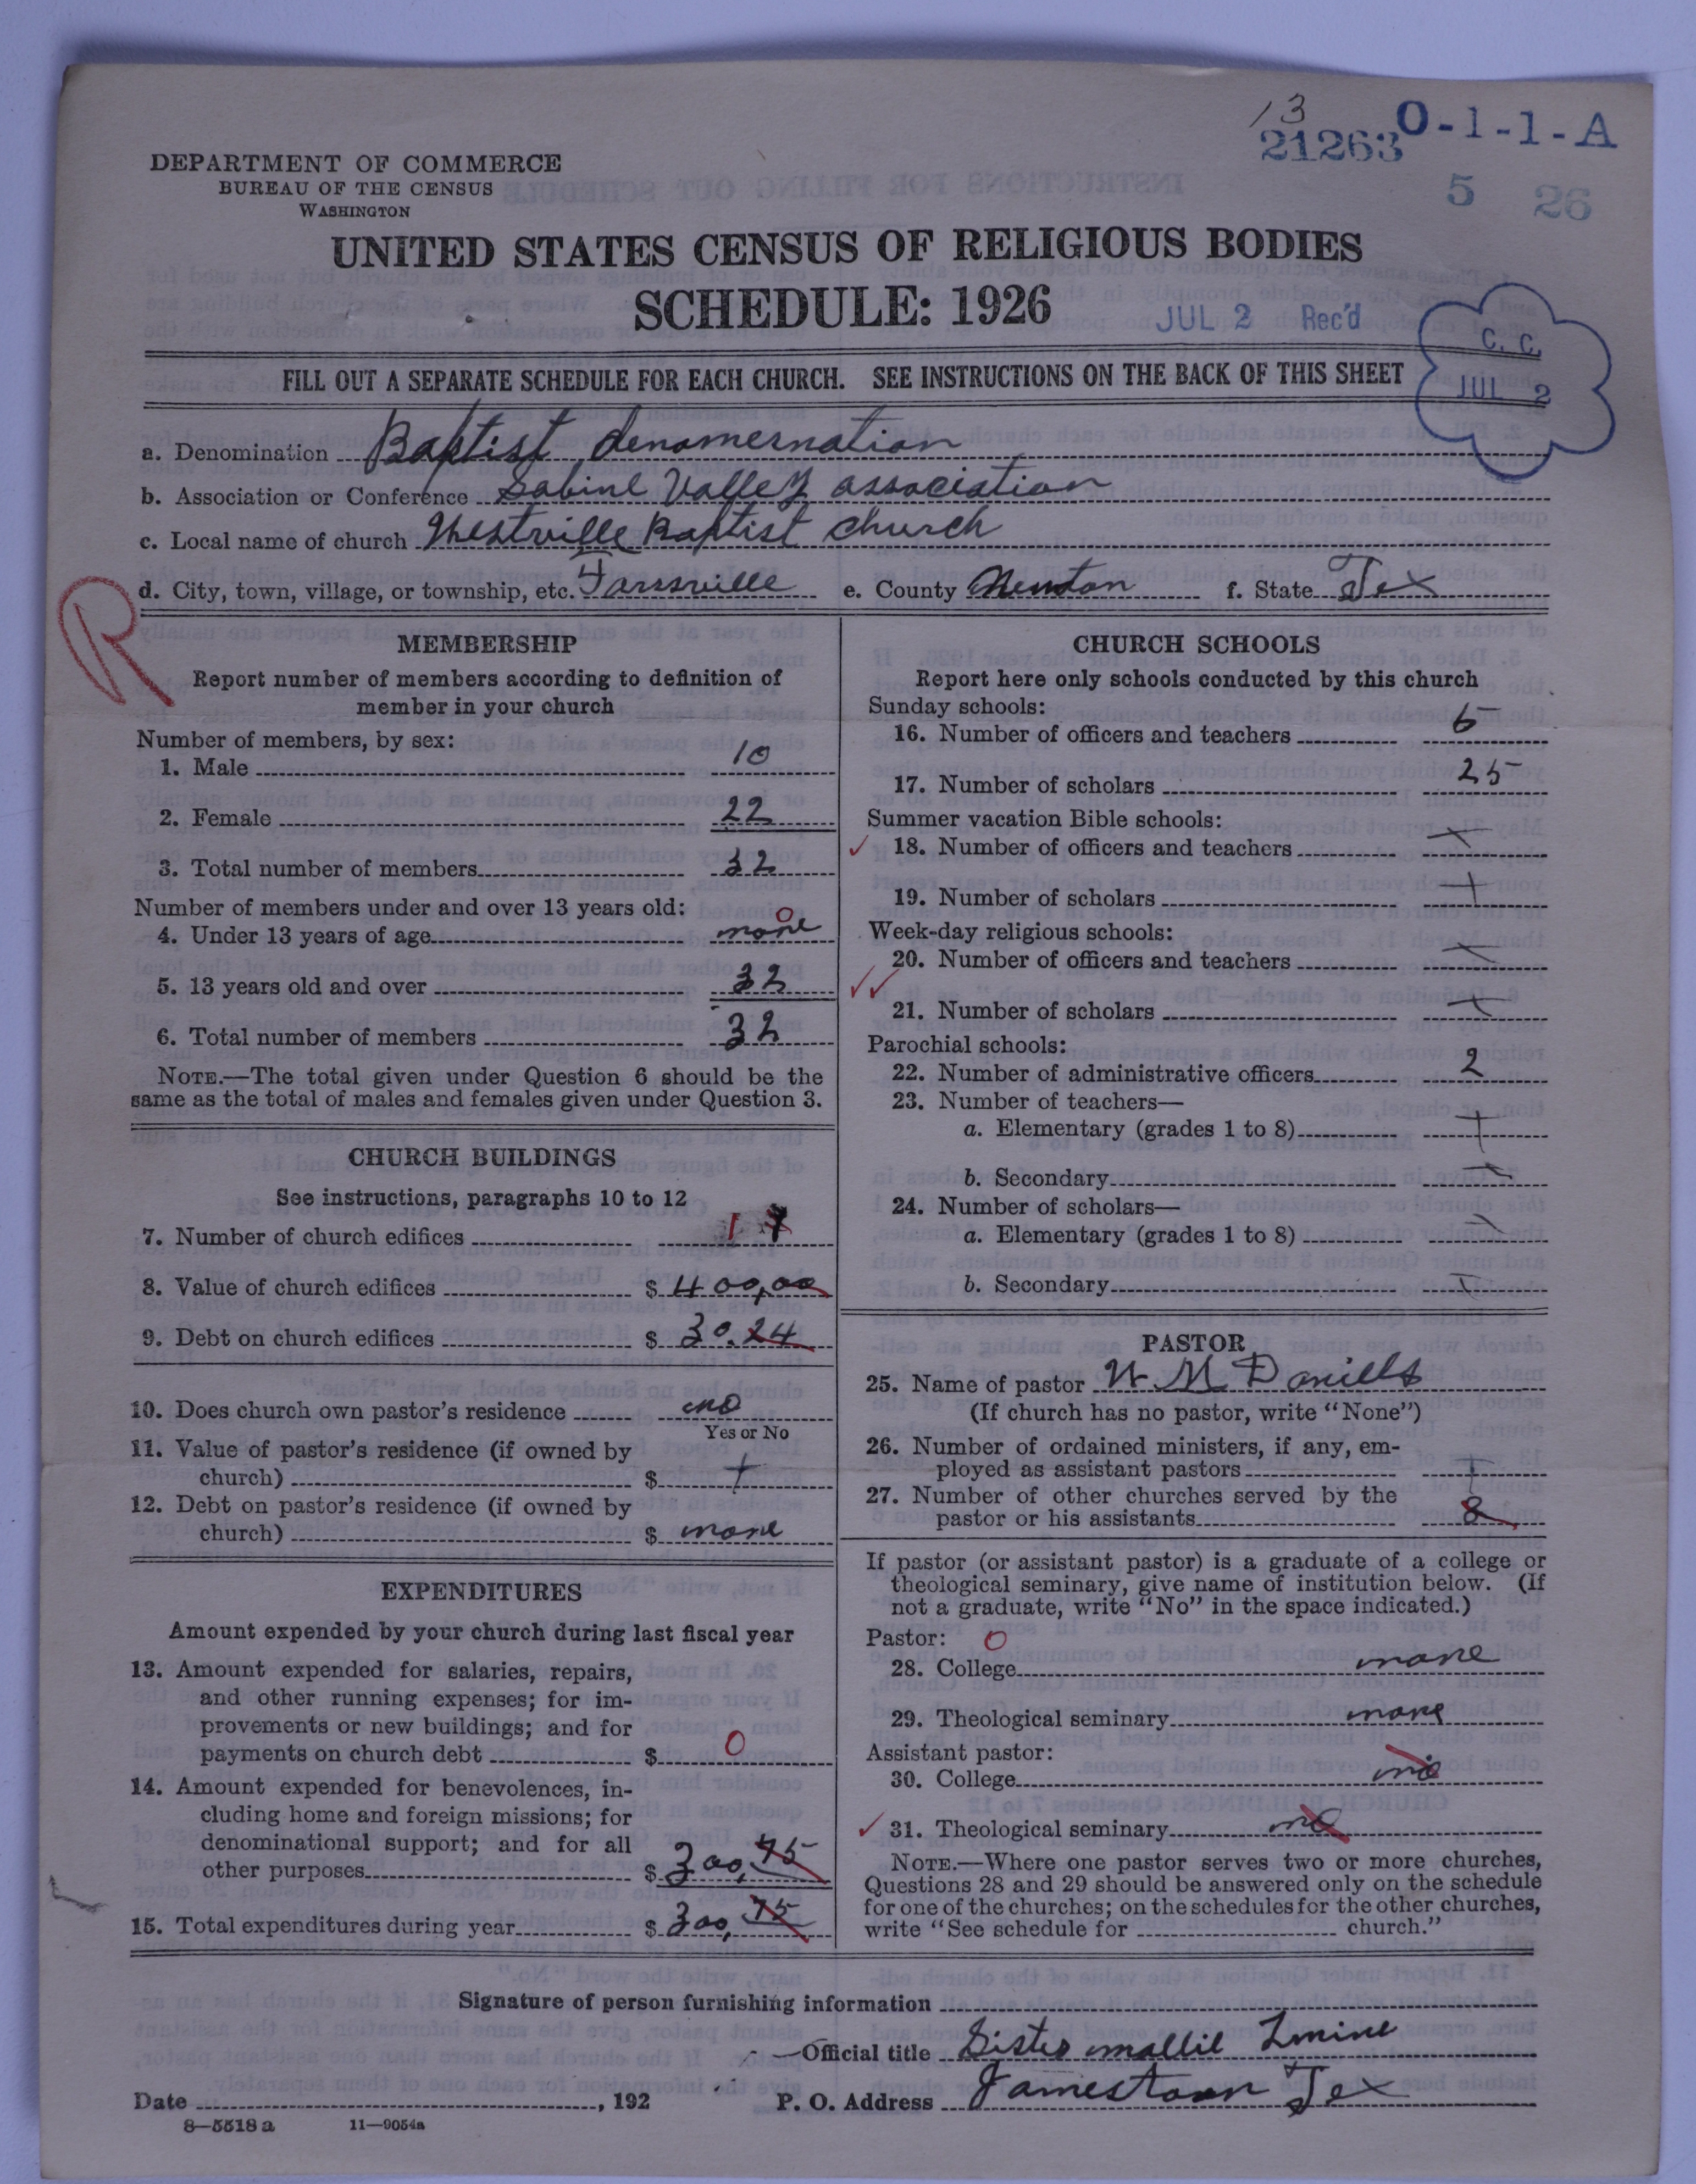 13
21263 O-1-1-A
5 26
DEPARTMENT OF COMMERCE
BUREAU OF THE CENSUS
WASHINGTON
UNITED STATES CENSUS OF RELIGIOUS BODIES
SCHEDULE: 1926
JUL 2 Rec'd
C. C.
JUL 2
FILL OUT A SEPARATE SCHEDULE FOR EACH CHURCH. SEE INSTRUCTIONS ON THE BACK OF THIS SHEET
a. Denomination Baptist denomernation
b. Association or Conference Sabine Valley association
c. Local name of church Westville Baptist church
d. City, town, village, or township, etc. Farrsville e. County Newton f. State Tex
R
MEMBERSHIP
Report number of members according to definition of
member in your church
Number of members, by sex:
1. Male 10
2. Female 22
3. Total number of members 32
Number of members under and over 13 years old:
4. Under 13 years of age none 0
5. 13 years old and over 32
6. Total number of members 32
NOTE.—The total given under Question 6 should be the
same as the total of males and females given under Question 3.
CHURCH BUILDINGS
See instructions, paragraphs 10 to 12
7. Number of church edifices 1
8. Value of church edifices $ 400,00
9. Debt on church edifices $ 30.24
10. Does church own pastor's residence no
Yes or No
11. Value of pastor's residence (if owned by
church) $ +
12. Debt on pastor's residence (if owned by
church) $ none
EXPENDITURES
Amount expended by your church during last fiscal year
13. Amount expended for salaries, repairs,
and other running expenses; for im-
provements or new buildings; and for
payments on church debt $ 0
14. Amount expended for benevolences, in-
cluding home and foreign missions; for
denominational support; and for all
other purposes $ 300,75
15. Total expenditures during year $ 300,75
CHURCH SCHOOLS
Report here only schools conducted by this church
Sunday schools:
16. Number of officers and teachers 5
17. Number of scholars 25
Summer vacation Bible schools:
18. Number of officers and teachers +
19. Number of scholars +
Week-day religious schools:
20. Number of officers and teachers +
21. Number of scholars +
Parochial schools:
22. Number of administrative officers 2
23. Number of teachers—
a. Elementary (grades 1 to 8) +
b. Secondary
24. Number of scholars—
a. Elementary (grades 1 to 8)
b. Secondary
PASTOR
25. Name of pastor W M Daniells
(If church has no pastor, write "None")
26. Number of ordained ministers, if any, em-
ployed as assistant pastors +
27. Number of other churches served by the
pastor or his assistants 8
If pastor (or assistant pastor) is a graduate of a college or
theological seminary, give name of institution below. (If
not a graduate, write "No" in the space indicated.)
Pastor: 0
28. College none
29. Theological seminary none
Assistant pastor:
30. College no
31. Theological seminary no
NOTE.—Where one pastor serves two or more churches,
Questions 28 and 29 should be answered only on the schedule
for one of the churches; on the schedules for the other churches,
write "See schedule for church."
Signature of person furnishing information
Official title Sister mallie
Date , 192 P. O. Address Jamestown Tex
8—5518 a 11—9054a